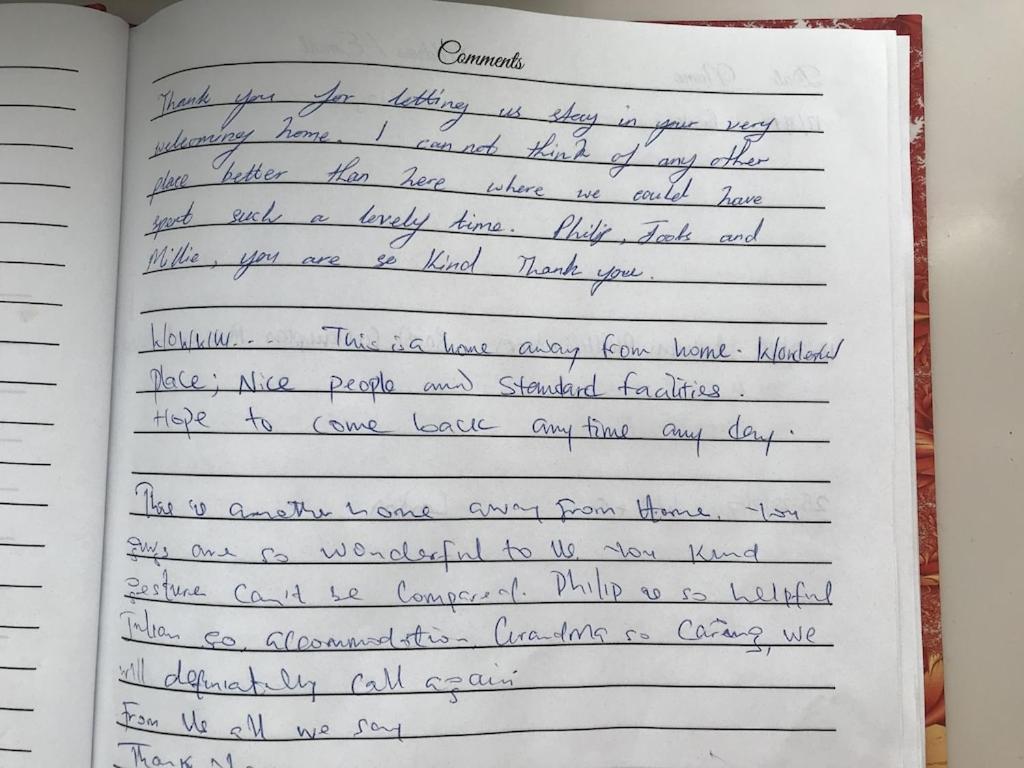 Comments
Thank you for letting us stay in your very
welcoming home. I can not think of any other
place better than here where we could have
spent such a lovely time. Philip, and
Millie, you are so Kind Thank you.
Wowww... This is a home away from home. Wonderful
Place; Nice people and Standard facilities.
Hope to come back any time any day.
This is another home away from Home. You
guys are so wonderful to Us. You Kind
gesture Can't be Compared. Philip is so helpful
so accommodation, Grandma so Caring, we
will definiately Call again
From Us all we say
Thank